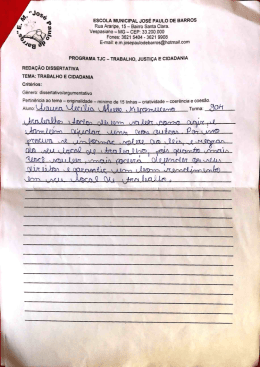 E. M. "José Paulo de Barros"
ESCOLA MUNICIPAL JOSÉ PAULO DE BARROS
Rua Araripe, 15 – Bairro Santa Clara.
Vespasiano – MG – CEP: 33.200.000
Fones: 3621 5484 - 3621 8905
E-mail: e.m.josepaulodebarros@hotmail.com
PROGRAMA TJC – TRABALHO, JUSTIÇA E CIDADANIA
REDAÇÃO DISSERTATIVA
TEMA: TRABALHO E CIDADANIA
Critérios:
Gênero: dissertativo/argumentativo
Pertinência ao tema – originalidade – mínimo de 15 linhas – criatividade – coerência e coesão
Cecília Turma 304
trabalho todos tem um valor como agir, e
também ajudar uns aos outros. Por isso
procure se informar sobre as leis, e regras
do seu local de trabalho, pois quanto mais
você souber mais poderá defender os seus
direitos e garantir um bom rendimento
em seu local de trabalho.